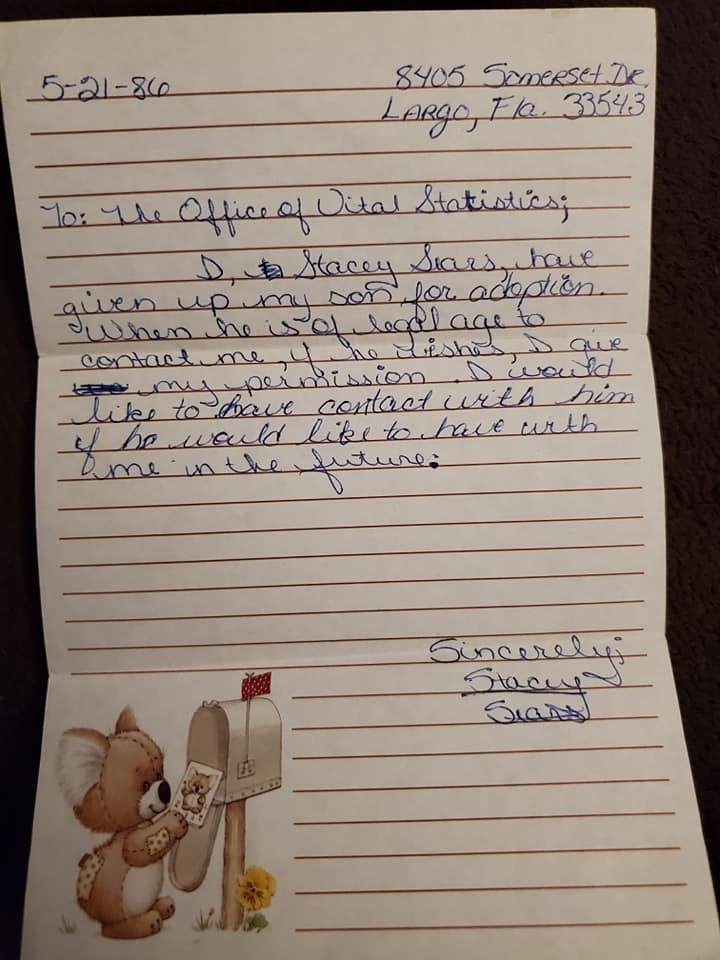 5-21-86
8405 Somerset Dr.
Largo, Fla. 33543
To: The Office of Vital Statistics;
I, Stacey Sears, have
given up my son for adoption.
When he is of legal age to
contact me, if he wishes, I give
my permission. I would
like to have contact with him
if he would like to have with
me in the future.
Sincerely;
Stacey
Sears